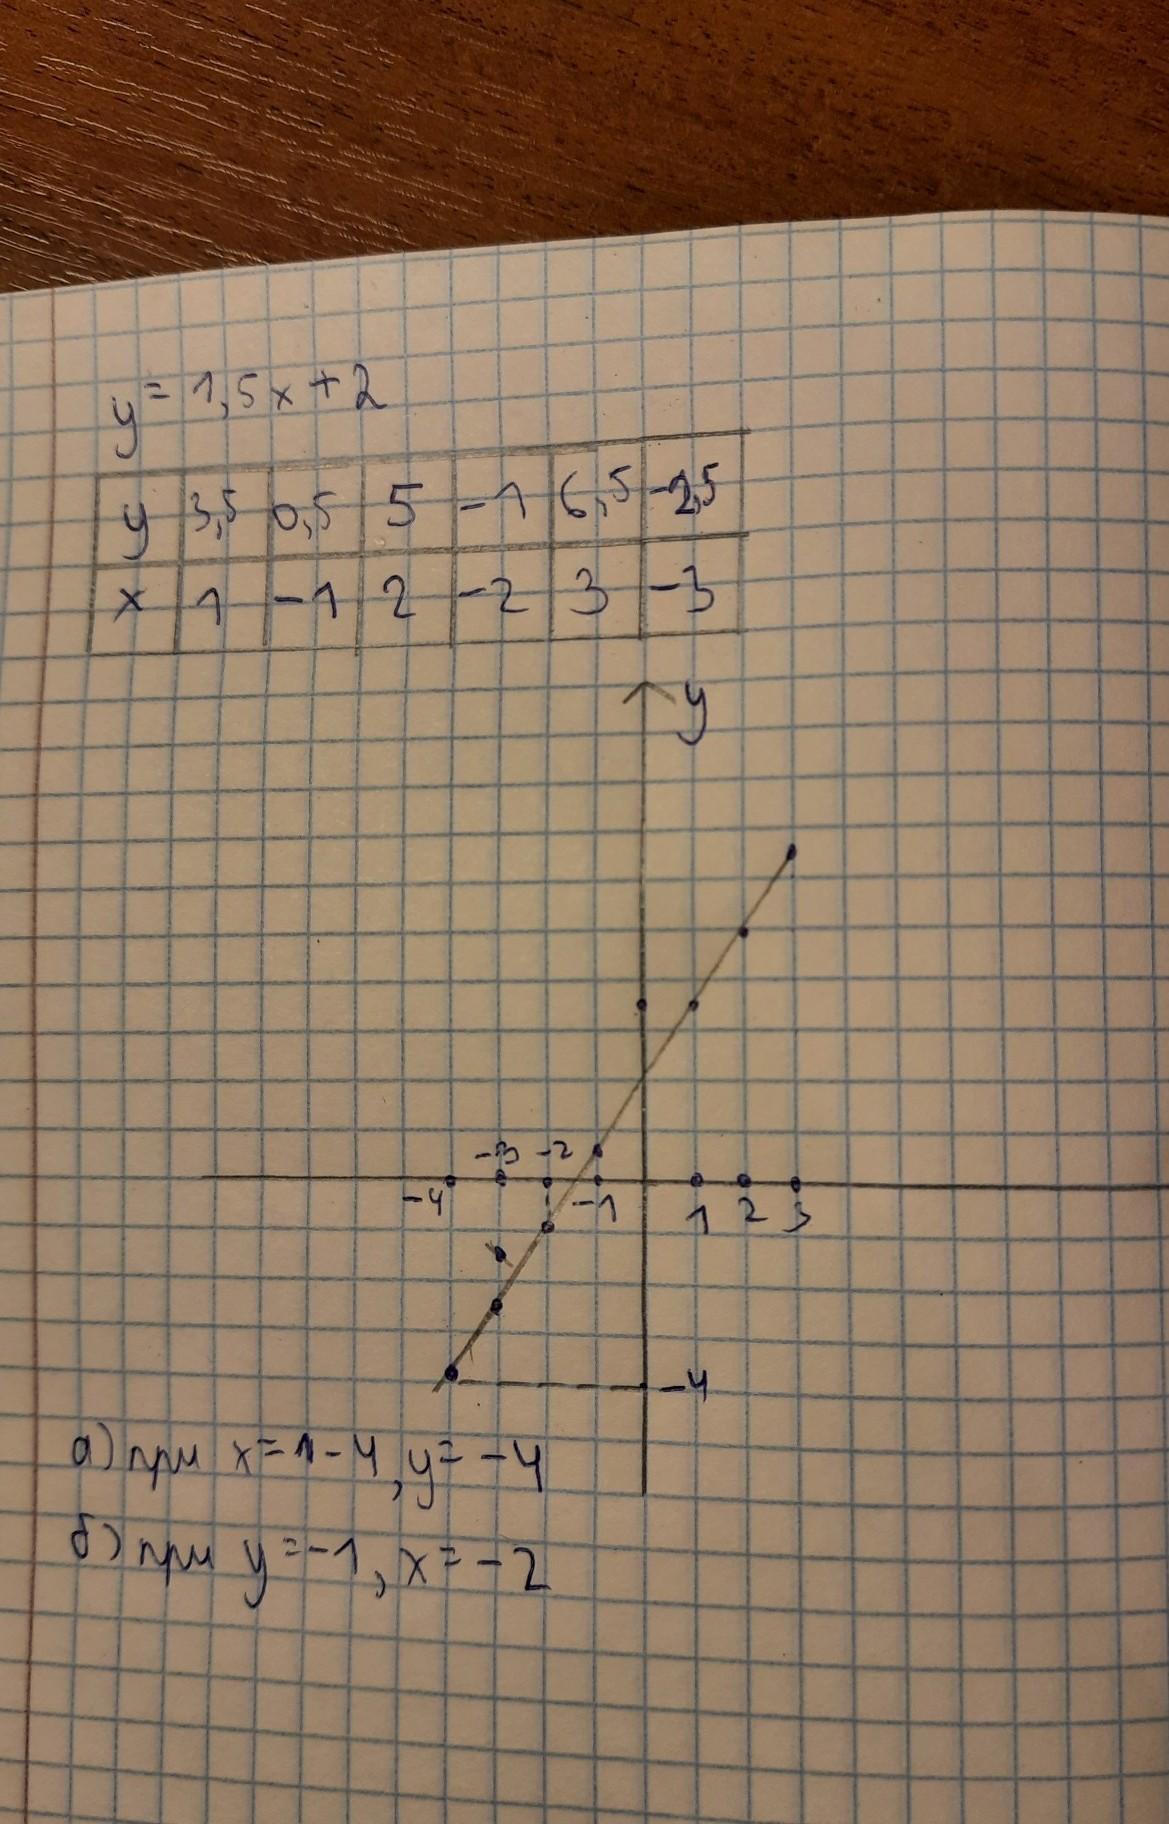 y = 1,5x + 2
y 3,5 0,5 5 -1 6,5 -2,5
x 1 -1 2 -2 3 -3
y
-3 -2
-4 -1 1 2 3
-4
а) при x = -4, y = -4
б) при y = -1, x = -2